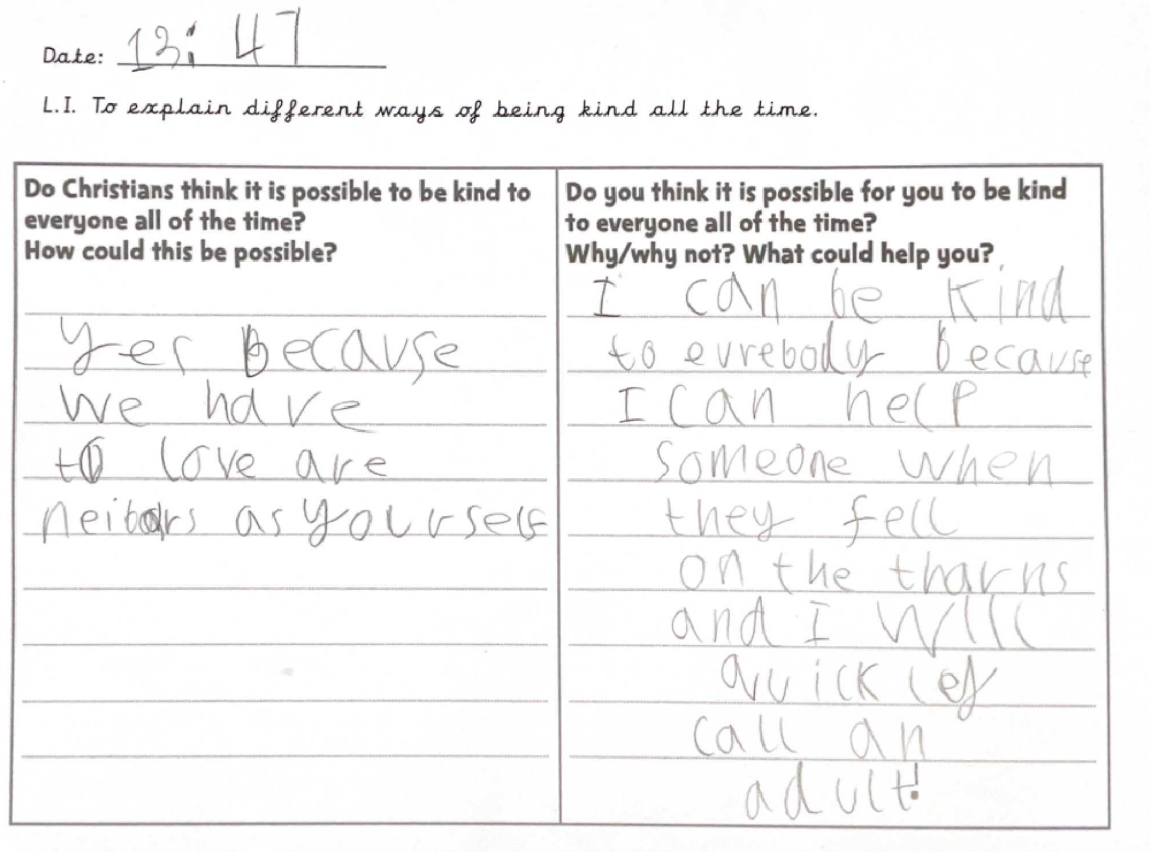 Date: 13: 47
L.I. To explain different ways of being kind all the time.
Do Christians think it is possible to be kind to
everyone all of the time?
How could this be possible?
Yes because
we have
to love are
neitbors as yourself
Do you think it is possible for you to be kind
to everyone all of the time?
Why/why not? What could help you?
I can be kind
to evrebody because
I can help
someone when
they fell
on the tharns
and I will
quickley
call an
adult!